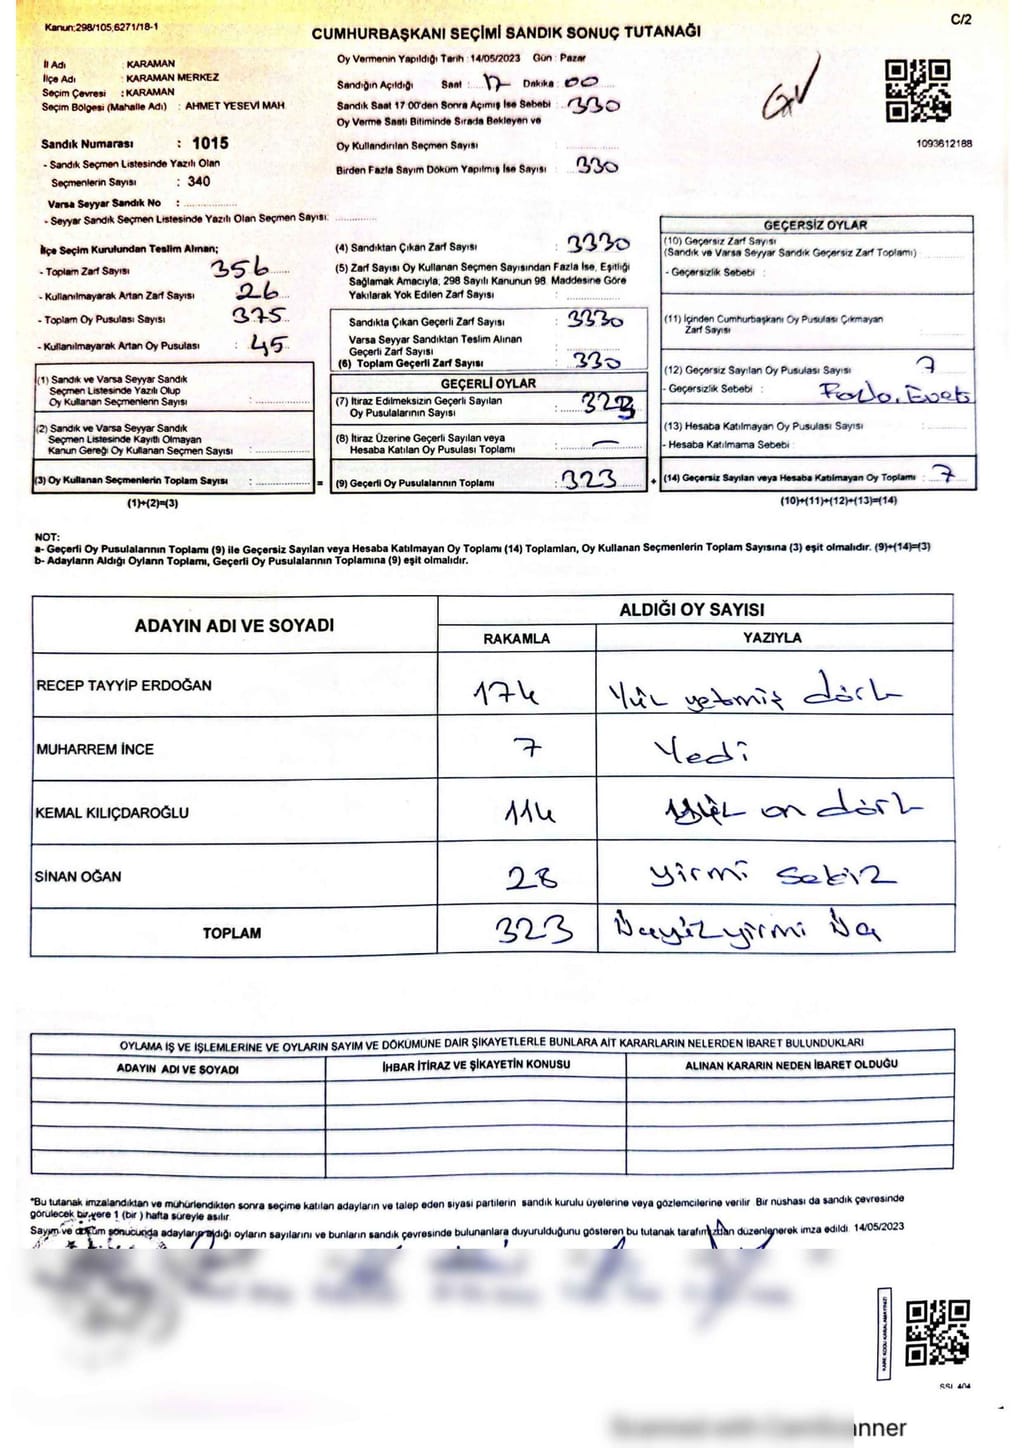 Kanun:298/105,6271/18-1
C/2
CUMHURBAŞKANI SEÇİMİ SANDIK SONUÇ TUTANAĞI
İl Adı : KARAMAN
İlçe Adı : KARAMAN MERKEZ
Seçim Çevresi : KARAMAN
Seçim Bölgesi (Mahalle Adı) : AHMET YESEVİ MAH
Sandık Numarası : 1015
- Sandık Seçmen Listesinde Yazılı Olan
Seçmenlerin Sayısı : 340
Varsa Seyyar Sandık No :
- Seyyar Sandık Seçmen Listesinde Yazılı Olan Seçmen Sayısı:
Oy Vermenin Yapıldığı Tarih : 14/05/2023 Gün : Pazar
Sandığın Açıldığı Saat : 17 Dakika : 00
Sandık Saat 17:00'den Sonra Açımış İse Sebebi : 330
Oy Verme Saati Bitiminde Sırada Bekleyen ve
Oy Kullandırılan Seçmen Sayısı :
Birden Fazla Sayım Döküm Yapılmış İse Sayısı : 330
1093612188
İlçe Seçim Kurulundan Teslim Alınan;
- Toplam Zarf Sayısı 356
- Kullanılmayarak Artan Zarf Sayısı 26
- Toplam Oy Pusulası Sayısı 375
- Kullanılmayarak Artan Oy Pusulası : 45
(1) Sandık ve Varsa Seyyar Sandık
Seçmen Listesinde Yazılı Olup
Oy Kullanan Seçmenlerin Sayısı :
(2) Sandık ve Varsa Seyyar Sandık
Seçmen Listesinde Kayıtlı Olmayan
Kanun Gereği Oy Kullanan Seçmen Sayısı :
(3) Oy Kullanan Seçmenlerin Toplam Sayısı : =
(1)+(2)=(3)
(4) Sandıktan Çıkan Zarf Sayısı : 3330
(5) Zarf Sayısı Oy Kullanan Seçmen Sayısından Fazla İse, Eşitliği
Sağlamak Amacıyla, 298 Sayılı Kanunun 98. Maddesine Göre
Yakılarak Yok Edilen Zarf Sayısı :
Sandıkta Çıkan Geçerli Zarf Sayısı : 3330
Varsa Seyyar Sandıktan Teslim Alınan
Geçerli Zarf Sayısı :
(6) Toplam Geçerli Zarf Sayısı : 330
GEÇERLİ OYLAR
(7) İtiraz Edilmeksizin Geçerli Sayılan
Oy Pusulalarının Sayısı : 323
(8) İtiraz Üzerine Geçerli Sayılan veya
Hesaba Katılan Oy Pusulası Toplamı : —
(9) Geçerli Oy Pusulalarının Toplamı : 323 +
GEÇERSİZ OYLAR
(10) Geçersiz Zarf Sayısı
(Sandık ve Varsa Seyyar Sandık Geçersiz Zarf Toplamı) :
- Geçersizlik Sebebi :
(11) İçinden Cumhurbaşkanı Oy Pusulası Çıkmayan
Zarf Sayısı :
(12) Geçersiz Sayılan Oy Pusulası Sayısı : 7
- Geçersizlik Sebebi :
(13) Hesaba Katılmayan Oy Pusulası Sayısı :
- Hesaba Katılmama Sebebi :
(14) Geçersiz Sayılan veya Hesaba Katılmayan Oy Toplamı : 7
(10)+(11)+(12)+(13)=(14)
NOT:
a- Geçerli Oy Pusulalarının Toplamı (9) ile Geçersiz Sayılan veya Hesaba Katılmayan Oy Toplamı (14) Toplamları, Oy Kullanan Seçmenlerin Toplam Sayısına (3) eşit olmalıdır. (9)+(14)=(3)
b- Adayların Aldığı Oyların Toplamı, Geçerli Oy Pusulalarının Toplamına (9) eşit olmalıdır.
ADAYIN ADI VE SOYADI
ALDIĞI OY SAYISI
RAKAMLA YAZIYLA
RECEP TAYYİP ERDOĞAN 174 Yüz yetmiş dört
MUHARREM İNCE 7 Yedi
KEMAL KILIÇDAROĞLU 114 yüz on dört
SİNAN OĞAN 28 yirmi sekiz
TOPLAM 323 Üçyüzyirmi üç
OYLAMA İŞ VE İŞLEMLERİNE VE OYLARIN SAYIM VE DÖKÜMÜNE DAİR ŞİKAYETLERLE BUNLARA AİT KARARLARIN NELERDEN İBARET BULUNDUKLARI
ADAYIN ADI VE SOYADI İHBAR İTİRAZ VE ŞİKAYETİN KONUSU ALINAN KARARIN NEDEN İBARET OLDUĞU
*Bu tutanak imzalandıktan ve mühürlendikten sonra seçime katılan adayların ve talep eden siyasi partilerin sandık kurulu üyelerine veya gözlemcilerine verilir. Bir nüshası da sandık çevresinde
görülecek bir yere 1 (bir ) hafta süreyle asılır.
Sayım ve döküm sonucunda adayların aldığı oyların sayılarını ve bunların sandık çevresinde bulunanlara duyurulduğunu gösteren bu tutanak tarafımızdan düzenlenerek imza edildi. 14/05/2023